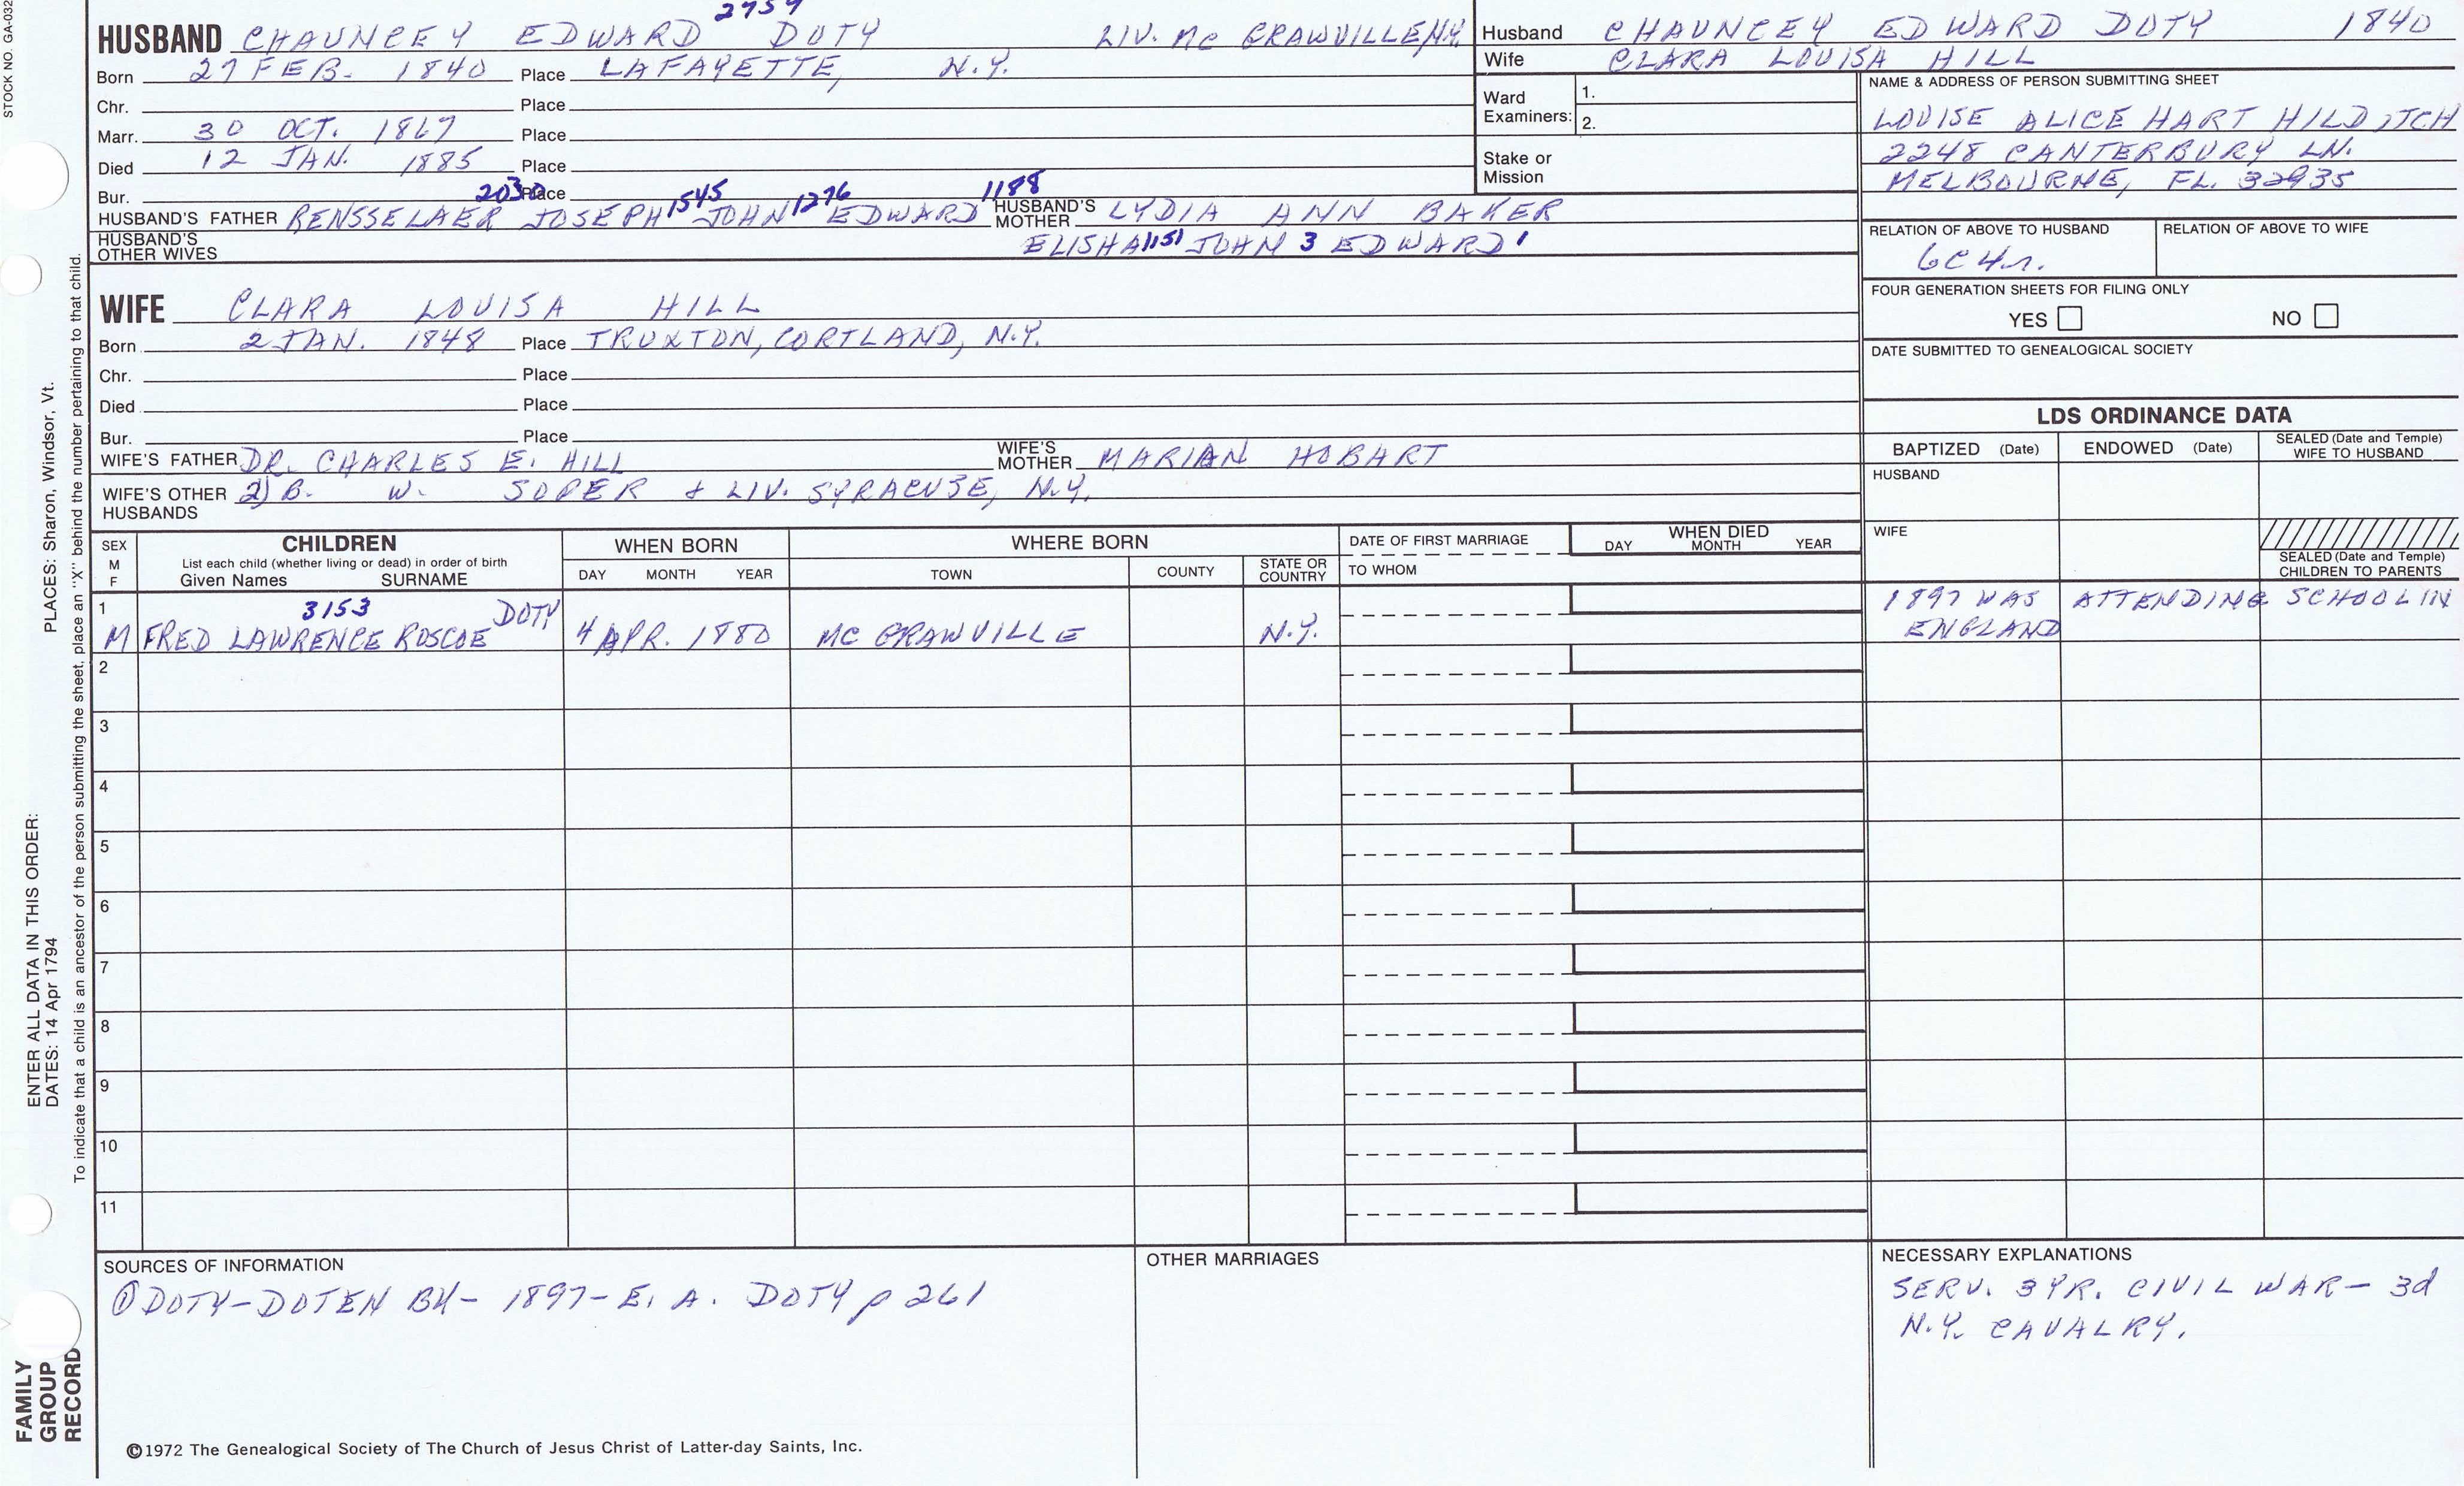 STOCK NO. GA-032
PLACES: Sharon, Windsor, Vt.
ENTER ALL DATA IN THIS ORDER:
DATES: 14 Apr 1794
To indicate that a child is an ancestor of the person submitting the sheet, place an "X" behind the number pertaining to that child.
FAMILY GROUP RECORD
HUSBAND CHAUNCEY EDWARD DOTY LIV. MC GRAWVILLE N.Y.
Born 27 FEB. 1840 Place LAFAYETTE, N.Y.
Chr. Place
Marr. 30 OCT. 1867 Place
Died 12 JAN. 1885 Place
Bur. Place
HUSBAND'S FATHER RENSSELAER 2030 JOSEPH 1545 JOHN 1276 EDWARD 1188 HUSBAND'S MOTHER LYDIA ANN BAKER
HUSBAND'S OTHER WIVES ELISHA 1151 JOHN 3 EDWARD 1
WIFE CLARA LOUISA HILL
Born 2 JAN. 1848 Place TRUXTON, CORTLAND, N.Y.
Chr. Place
Died Place
Bur. Place
WIFE'S FATHER DR. CHARLES E. HILL WIFE'S MOTHER MARIAN HOBART
WIFE'S OTHER HUSBANDS 2) B. W. SOPER & LIV. SYRACUSE, N.Y.
Husband CHAUNCEY EDWARD DOTY 1840
Wife CLARA LOUISA HILL
Ward Examiners: 1.
2.
Stake or Mission
NAME & ADDRESS OF PERSON SUBMITTING SHEET
LOUISE ALICE HART HILDITCH
2248 CANTERBURY LN.
MELBOURNE, FL. 32935
RELATION OF ABOVE TO HUSBAND RELATION OF ABOVE TO WIFE
6C4r.
FOUR GENERATION SHEETS FOR FILING ONLY
YES NO
DATE SUBMITTED TO GENEALOGICAL SOCIETY
LDS ORDINANCE DATA
BAPTIZED (Date) ENDOWED (Date) SEALED (Date and Temple) WIFE TO HUSBAND
HUSBAND
WIFE
SEALED (Date and Temple) CHILDREN TO PARENTS
SEX M F
CHILDREN
List each child (whether living or dead) in order of birth
Given Names SURNAME
WHEN BORN
DAY MONTH YEAR
WHERE BORN
TOWN COUNTY STATE OR COUNTRY
DATE OF FIRST MARRIAGE
TO WHOM
WHEN DIED
DAY MONTH YEAR
1 3153 DOTY 1897 WAS ATTENDING SCHOOL IN
M FRED LAWRENCE ROSCOE 4 APR. 1880 MC GRAWVILLE N.Y. ENGLAND
2
3
4
5
6
7
8
9
10
11
SOURCES OF INFORMATION
① DOTY-DOTEN BK- 1897- E. A. DOTY p 261
OTHER MARRIAGES
NECESSARY EXPLANATIONS
SERV. 3 YR. CIVIL WAR- 3d
N.Y. CAVALRY.
©1972 The Genealogical Society of The Church of Jesus Christ of Latter-day Saints, Inc.